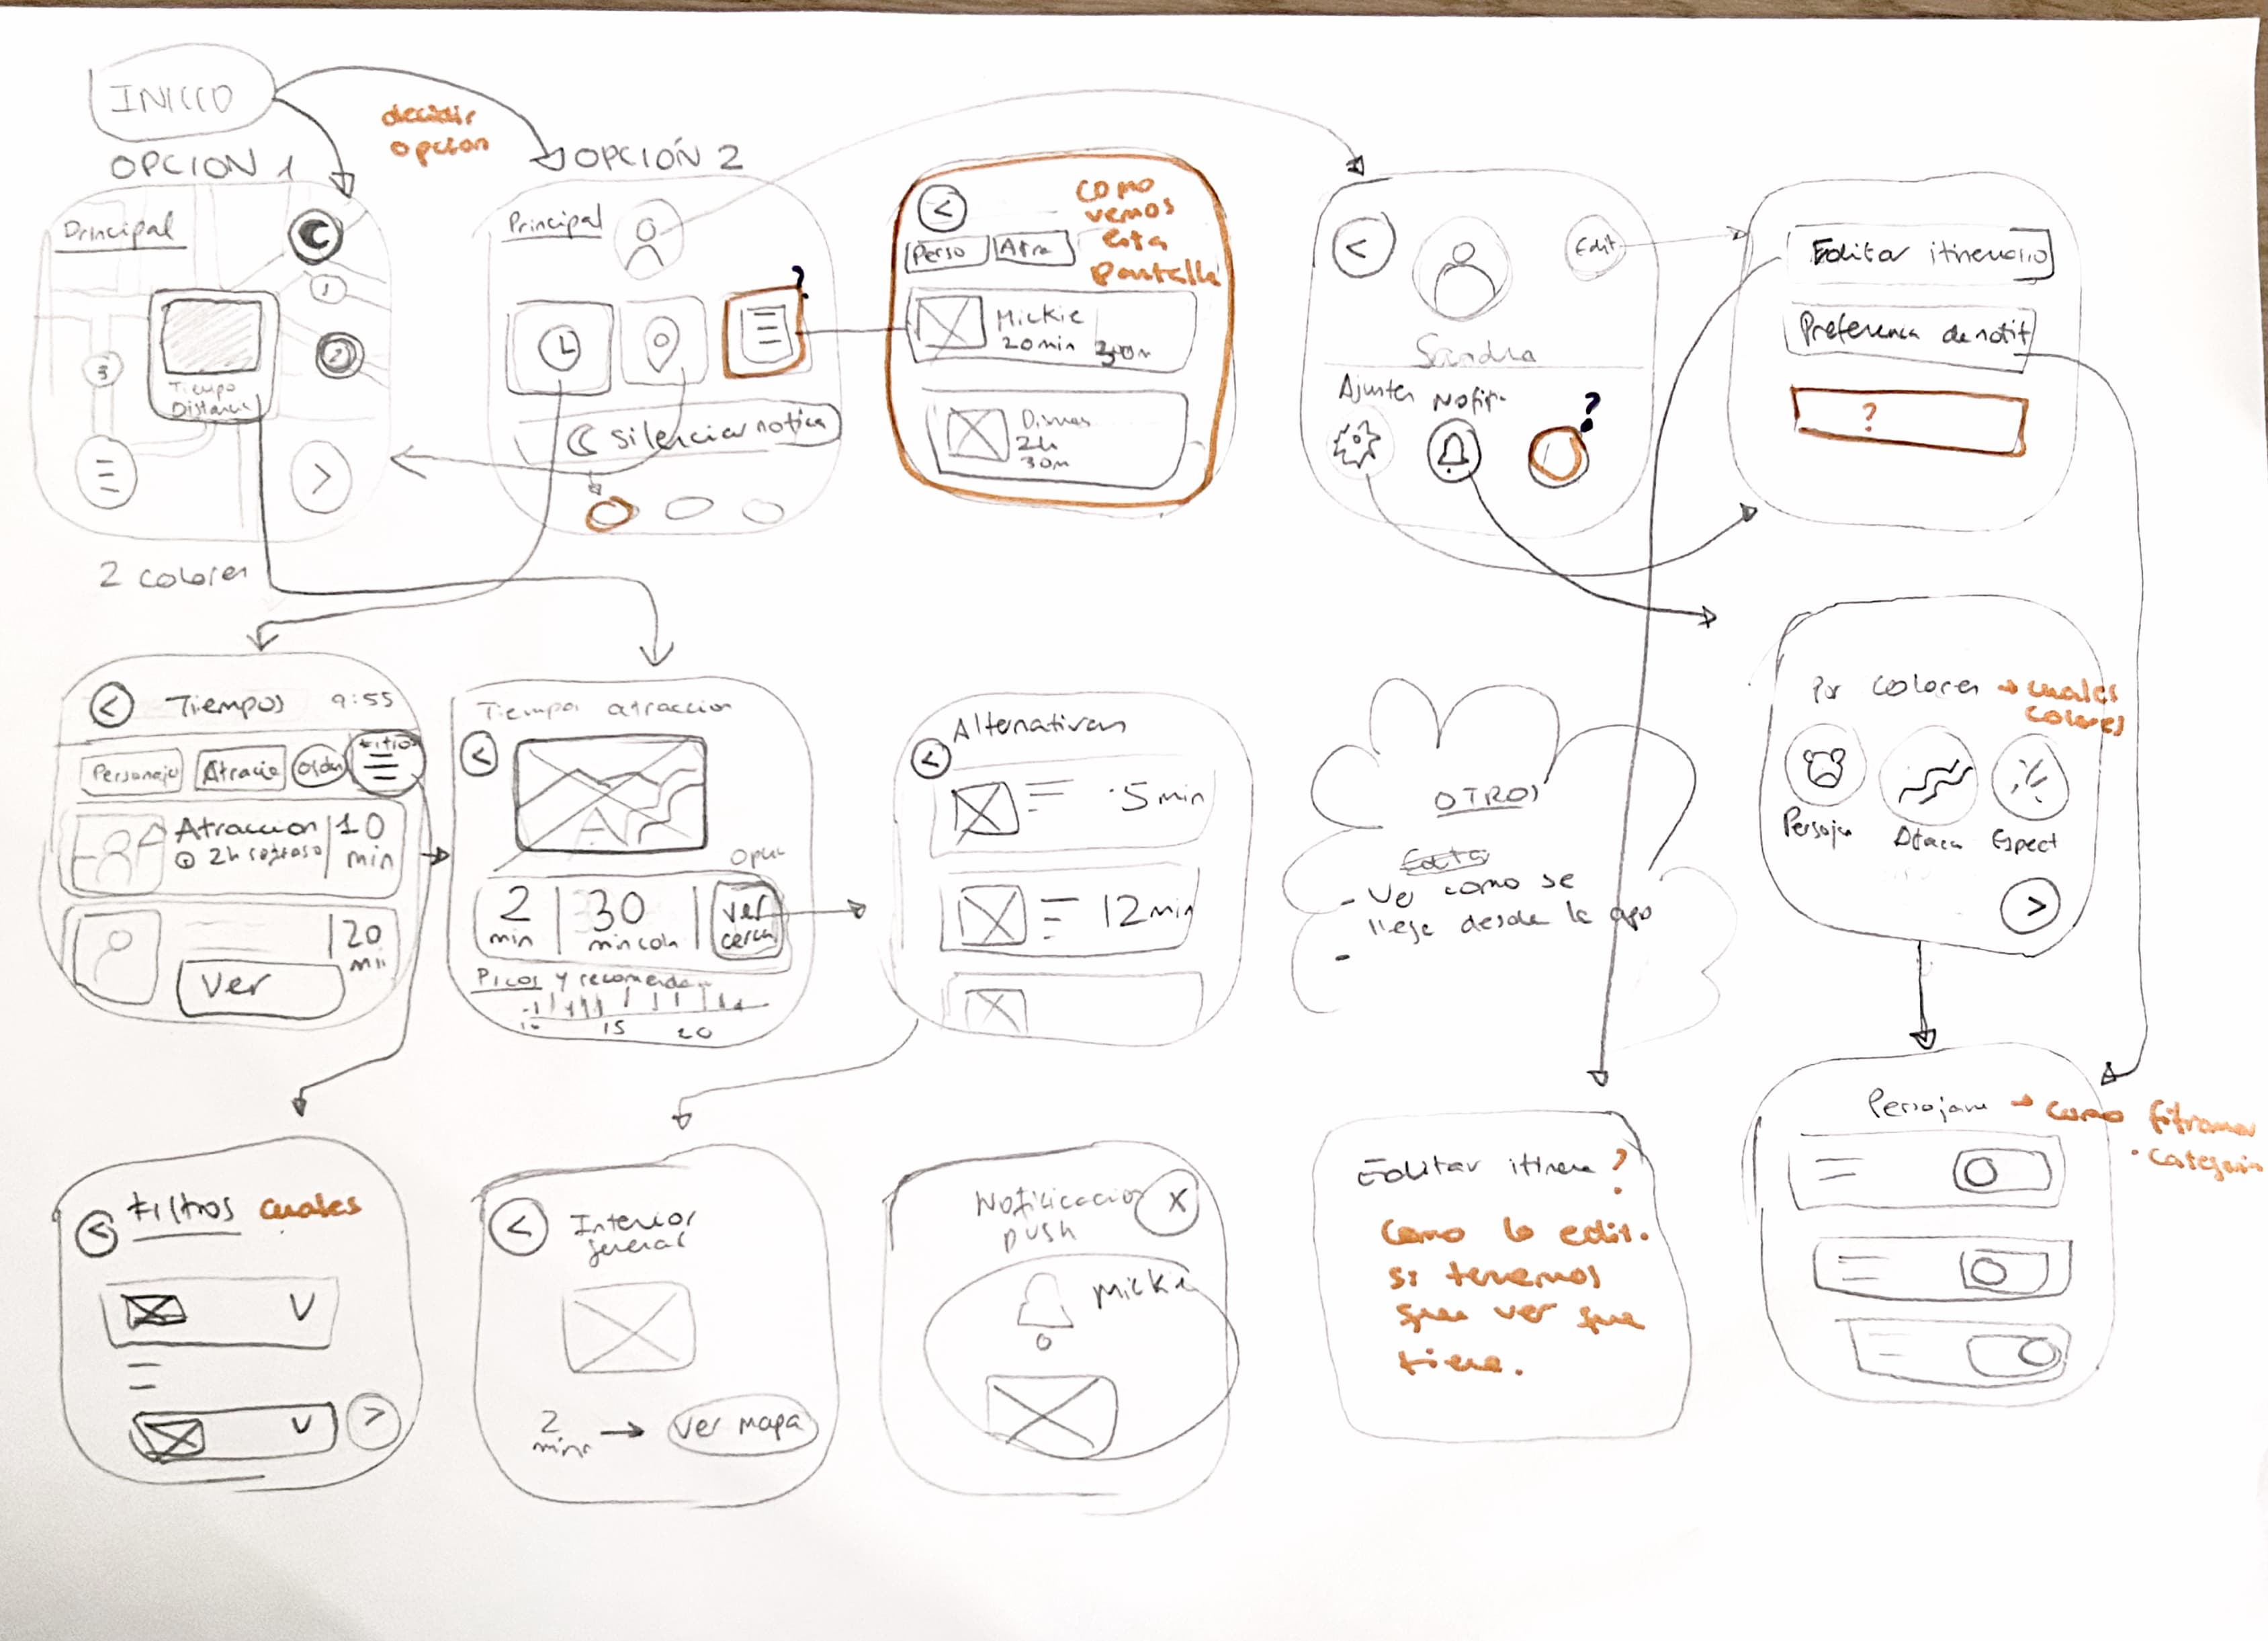 INICIO
decidir
opcion
OPCION 1
Principal
1
2
3
Tiempo
Distancia
2 colores
OPCIÓN 2
Principal
?
silenciar notica
como
vemos
esta
pantalla
<
Perso
Atra
Mickie
20min 300m
2h
30m
<
Edit
Sandra
Ajustes Notif.
?
Editar itinerario
Preferenca de notif
?
<
Tiempos
9:55
Personaje
Atraccio
Orden
Filtros
Atraccion
10
2h regreso
min
20
min
Ver
Tiempo atraccion
<
2
min
30
min cola
ver
cerca
Picos y recomenda
15
20
Alternativas
<
5 min
12 min
OTROS
- Ver como se
llega desde la app
-
Por colores → cuales
colores
Persoje
Atracc
Espect
>
Filtros cuales
<
V
V
>
<
Interior
general
2
mins
→
ver mapa
Notificacion
push
X
Mickie
Editar itinera ?
Como lo edit.
si tenemos
que ver que
tiene.
Persojans → como filtramos
· categoria